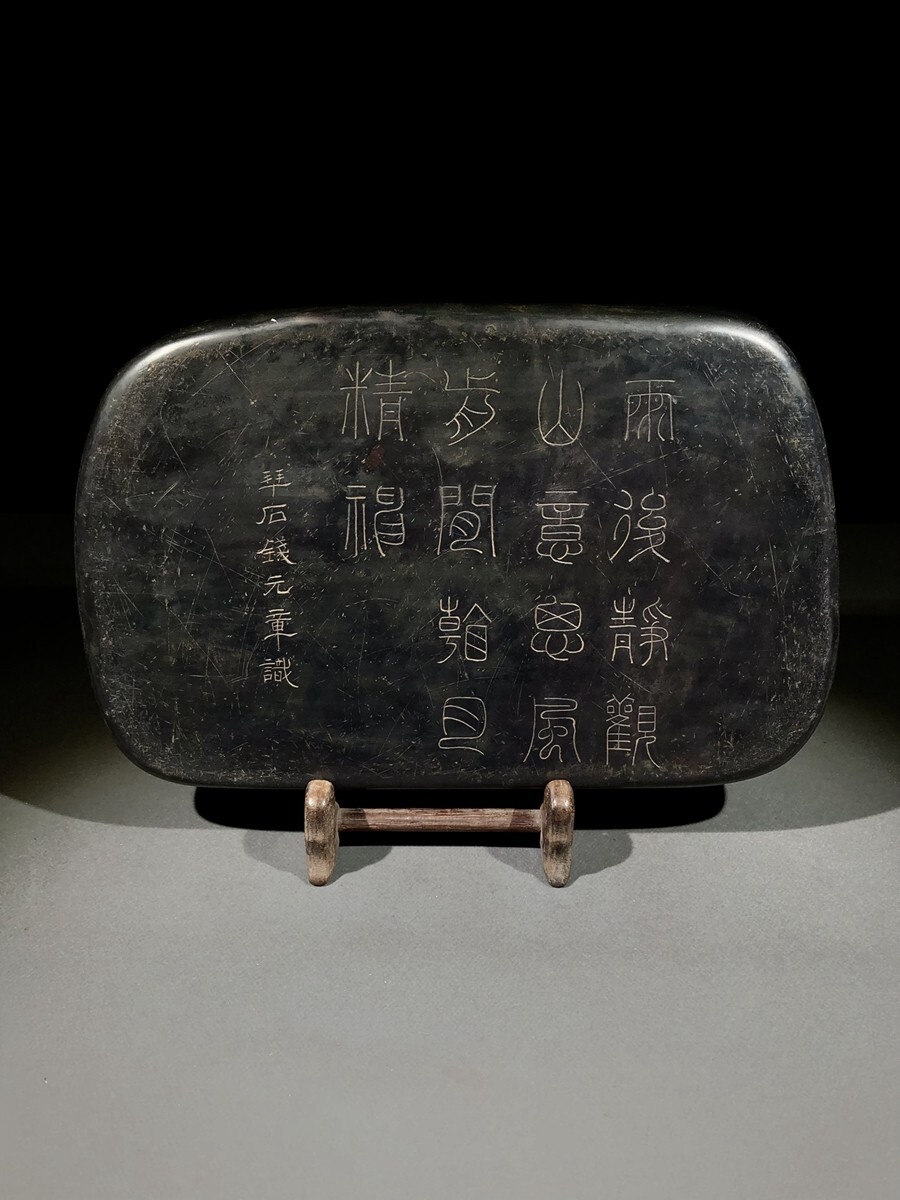 雨後靜觀
山意思風
前閒看月
精神
拜石錢元章識